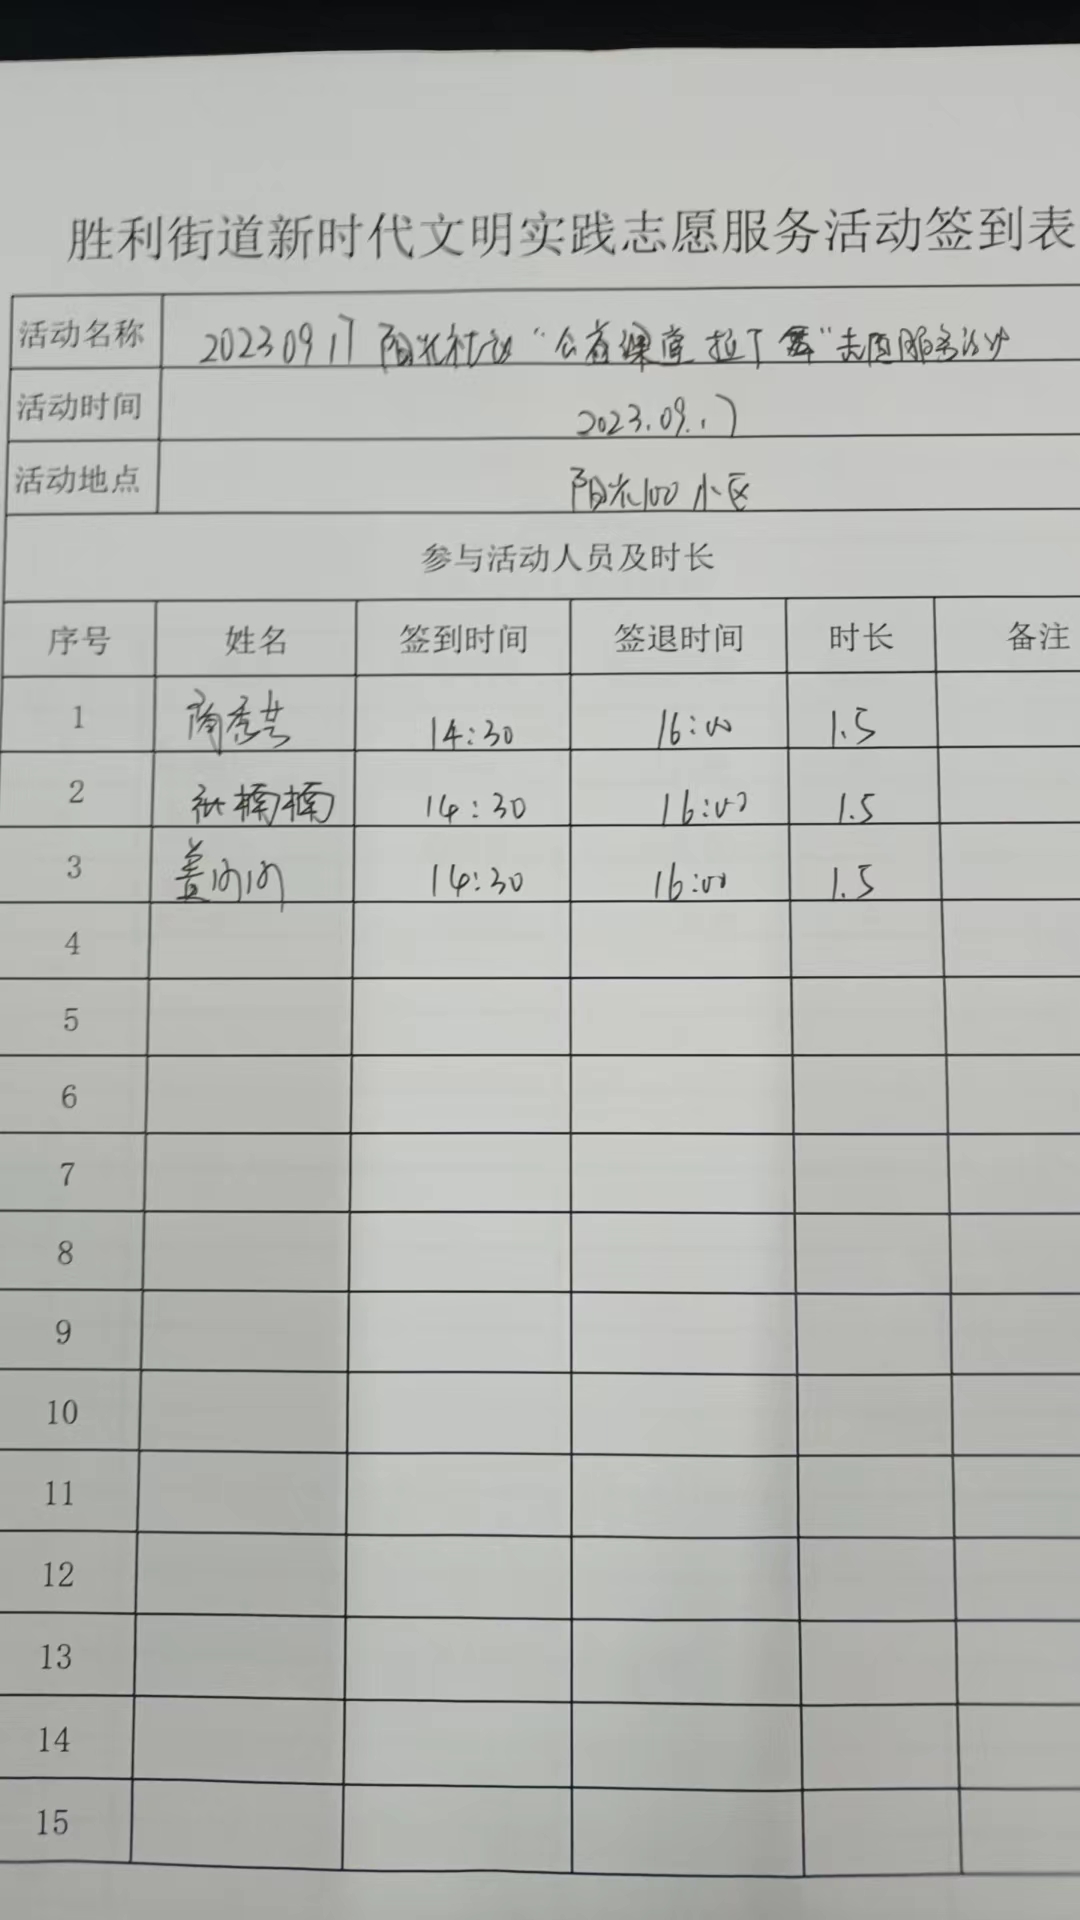 胜利街道新时代文明实践志愿服务活动签到表
活动名称 20230917 阳光社区“公益课堂 拉丁舞”志愿服务活动
活动时间 2023.09.17
活动地点 阳光100小区
参与活动人员及时长
序号 姓名 签到时间 签退时间 时长 备注
1 14:30 16:00 1.5
2 楠楠 14:30 16:00 1.5
3 14:30 16:00 1.5
4
5
6
7
8
9
10
11
12
13
14
15